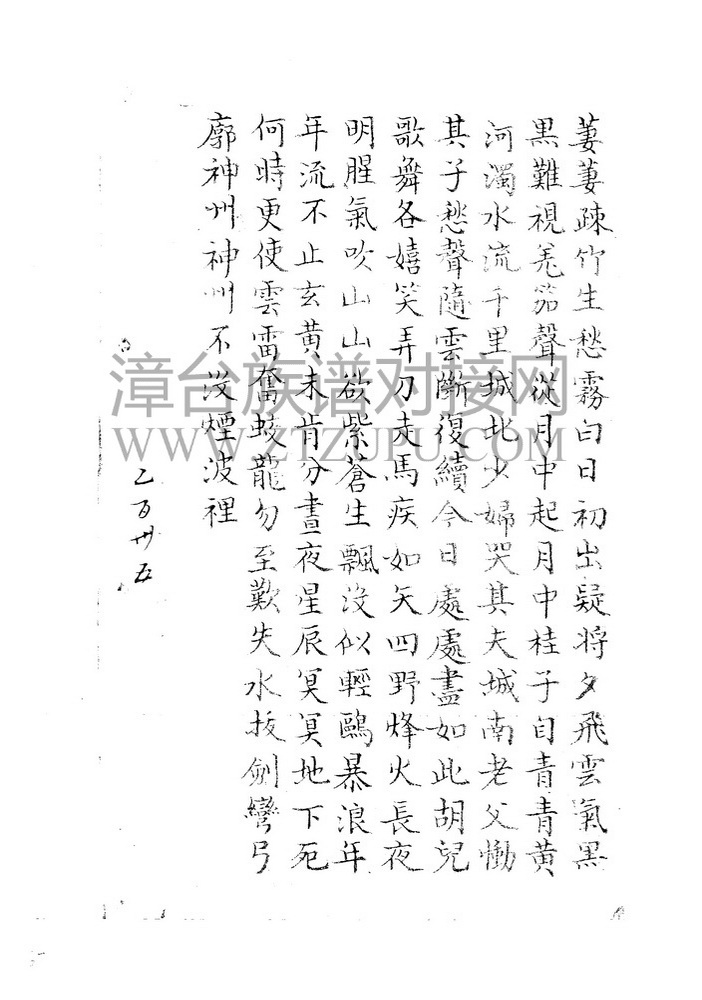 萋萋疎竹生愁霧白日初出疑将夕飛雲氣黑
黒難視羌笳聲從月中起月中桂子自青青黄
河濁水流千里城北少婦哭其夫城南老父慟
其子愁聲隨雲斷復續今日處處盡如此胡兒
歌舞各嬉笑弄刀走馬疾如矢四野烽火長夜
明腥氣吹山山欲紫蒼生飄没似輕鷗暴浪年
年流不止玄黄未肯分晝夜星辰冥冥地下死
何時更使雲雷奮蛟龍勿至歎失水拔劍彎弓
廓神州神州不没煙波裡
乙百卅五
漳台族谱对接网
WWW.ZTZUPU.COM